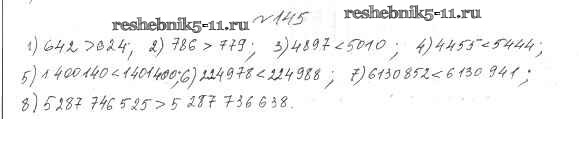 reshebnik5-11.ru №145 reshebnik5-11.ru
1) 642 > 624; 2) 786 > 779; 3) 4897 < 5010; 4) 4455 < 5444;
5) 1400140 < 1401400; 6) 224978 < 224988; 7) 6130852 < 6130941;
8) 5287746525 > 5287736638.